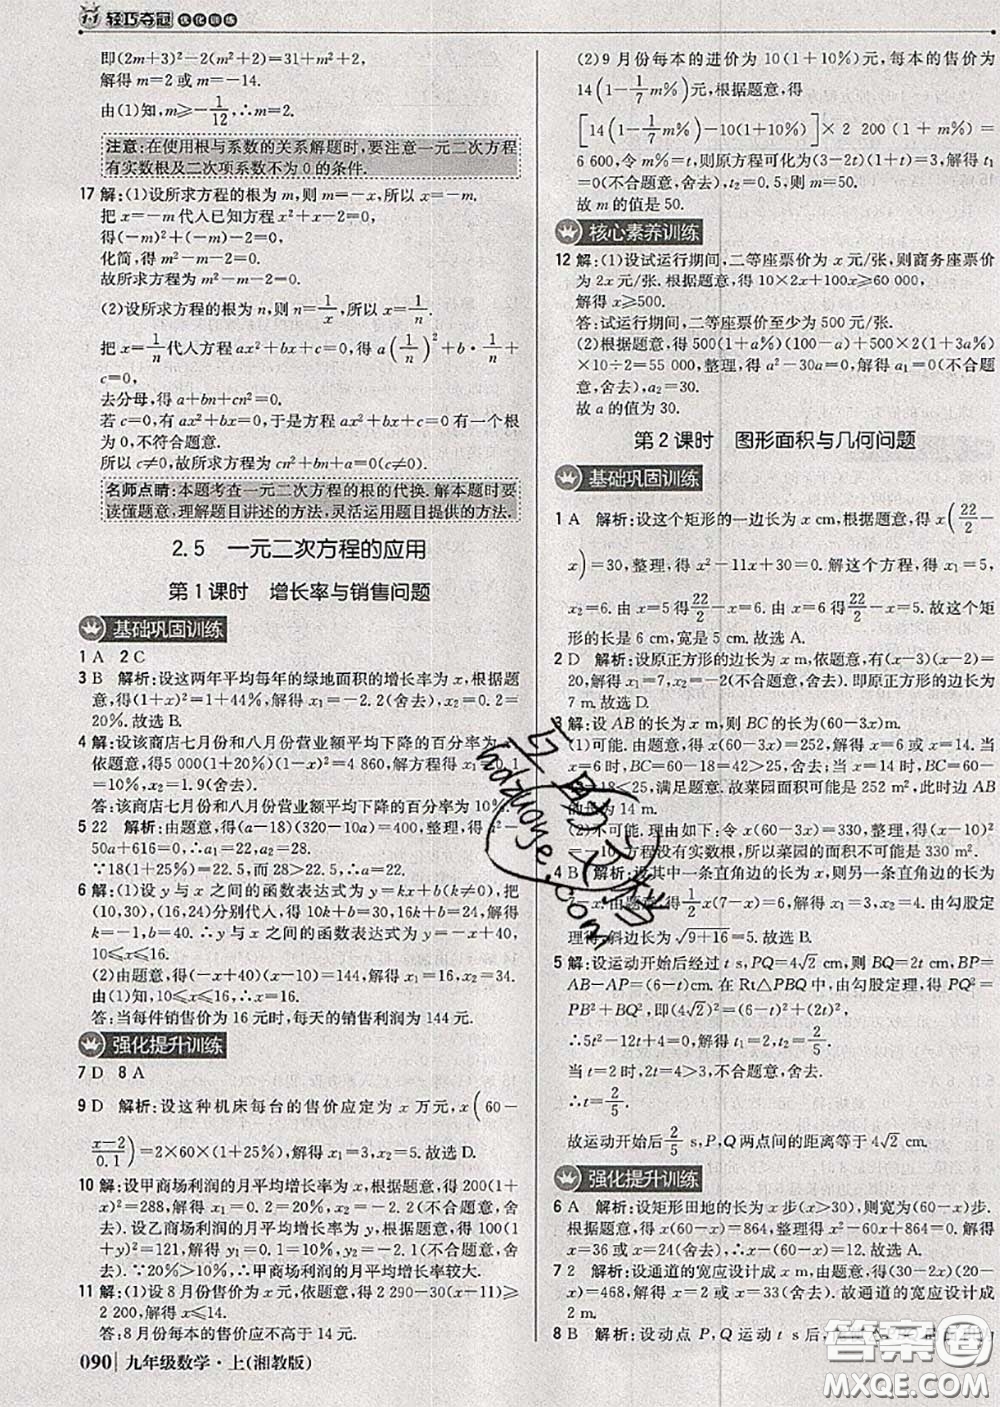 1+1 轻巧夺冠 优化训练
即(2m+3)²-2(m²+2m)=31+m²+2m,
解得 m=2或 m=-14.
由(1)知,m≥-1/12,∴m=2.
注意:在使用根与系数的关系解题时,要注意一元二次方程
有实数根及二次项系数不为 0 的条件.
17 解:(1)设所求方程的根为 m,则 m=-x,所以 x=-m.
把 x=-m代入已知方程 x²+x-2=0,
得(-m)²+(-m)-2=0,
化简,得 m²-m-2=0.
故所求方程为 m²-m-2=0.
(2)设所求方程的根为 n,则 n=1/x,所以 x=1/n.
把 x=1/n代入方程 ax²+bx+c=0,得 a(1/n)²+b·1/n+
c=0,
去分母,得 a+bn+cn²=0.
若 c=0,有 ax²+bx=0,于是方程 ax²+bx+c=0有一个根
为 0,不符合题意.
所以 c≠0,故所求方程为 cn²+bn+a=0(c≠0).
名师点睛:本题考查一元二次方程的根的代换.解本题时要
读懂题意,理解题目讲述的方法,灵活运用题目提供的方法.
2.5 一元二次方程的应用
第1课时 增长率与销售问题
基础巩固训练
1 A 2 C
3 B 解析:设这两年平均每年的绿地面积的增长率为 x,根据题
意,得(1+x)²=1+44%,解得 x₁=-2.2(舍去),x₂=0.2=
20%.故选 B.
4 解:设该商店七月份和八月份营业额平均下降的百分率为 x,
依题意,得5 000(1+20%)(1-x)²=4 860,解方程得 x₁=0.1
=10%,x₂=1.9(舍去).
答:该商店七月份和八月份营业额平均下降的百分率为 10%.
5 22 解析:由题意,得(a-18)(320-10a)=400,整理,得 a²-
50a+616=0,解得 a₁=22,a₂=28.
∵18(1+25%)=22.5,而28>22.5,∴a=22.
6 解:(1)设 y 与 x 之间的函数表达式为 y=kx+b(k≠0),把
(10,30),(16,24)分别代入,得 10k+b=30,16k+b=24,解得
k=-1,b=40.∴y 与 x 之间的函数表达式为 y=-x+40,
10≤x≤16.
(2)由题意,得(-x+40)(x-10)=144,解得 x₁=16,x₂=34.
∵10≤x≤16,∴x=16.
答:当每件销售价为 16 元时,每天的销售利润为 144 元.
强化提升训练
7 D 8 A
9 D 解析:设这种机床每台的售价应定为 x 万元,x(60-
(x-2)/0.1)=2×60×(1+25%),解得 x₁=3,x₂=5.故选 D.
10 解:设甲商场利润的月平均增长率为 x,根据题意,得 100(1+
x)²=121,解得 x₁=0.1=10%,x₂=-2.1(不合题意,舍
去).设乙商场利润的月平均增长率为 y,根据题意,得 200(1
+y)²=288,解得 y₁=0.2=20%,y₂=-2.2(不合题意,舍
去).∵20%>10%,∴甲商场利润的月平均增长率较大.
11 解:(1)设 8月份售价为 x元,依题意,得 2 290-30(x-11)≥
2 200,解得 x≤14.
答:8月份每本的售价应不高于 14 元.
090 九年级数学·上(湘教版)
(2)9 月份每本的进价为 10(1+10%)元,每本的售价为
14(1-1/7m%)元,根据题意,得
[14(1-1/7m%)-10(1+10%)]×2 200(1+m%)=
6 600,令 m%=t,则原方程可化为(3-2t)(1+t)=3,解得 t₁
=0(不合题意,舍去),t₂=0.5,则 m=50.
故 m 的值是 50.
核心素养训练
12 解:(1)设试运行期间,二等座票价为 x 元/张,则商务座票价
为 2x 元/张.根据题意,得 10×2x+100x≥60 000,
解得 x≥500.
答:试运行期间,二等座票价至少为 500 元/张.
(2)根据题意,得 500(1+a%)(100-a)+500×2(1+3a%)
×10÷2=55 000,整理,得 a²-30a=0.解得 a₁=0(不合题
意,舍去),a₂=30.
故 a 的值为 30.
第2课时 图形面积与几何问题
基础巩固训练
1 A 解析:设这个矩形的一边长为 x cm,根据题意,得 x(22/2-
x)=30,整理,得 x²-11x+30=0.解这个方程,得 x₁=5,
x₂=6.由 x=5得22/2-x=6,由 x=6得22/2-x=5.故这个矩
形的长是 6 cm,宽是 5 cm.故选 A.
2 D 解析:设原正方形的边长为 x m,依题意,有(x-3)(x-2)=
20,解得 x₁=7,x₂=-2(不合题意,舍去).即原正方形的边长
为 7 m.故选 D.
3 解:设 AB的长为 x m,则 BC的长为(60-3x) m.
(1)可能.由题意,得 x(60-3x)=252,解得 x=6或 x=14.当
x=6时,BC=60-18=42>25,舍去;当 x=14时,BC=60-
42=18<25,满足题意.故菜园面积可能是 252 m²,此时边 AB
的长为 14 m.
(2)不可能.理由如下:令 x(60-3x)=330,整理,得(x-10)²=
-10,方程没有实数根,所以菜园的面积不可能是 330 m².
4 B 解析:设其中一条直角边的长为 x,则另一条直角边的长为
7-x.由题意,得1/2x(7-x)=6,解得 x₁=3,x₂=4.由勾股定
理得,斜边长为√9+16=5.故选 B.
5 解:设运动开始后经过 t s,PQ=4√2 cm,则 AP=t cm,BP=
AB-AP=(6-t)cm,BQ=2t cm.在 Rt△PBQ 中,由勾股定
理,得 BP²+BQ²=PQ²,即(4√2)²=(6-t)²+(2t)².
∴5t²-12t+4=0.解得 t₁=2,t₂=2/5.
当 t=2时,2t=4>3,不合题意,舍去.
∴t=2/5.
故运动开始后2/5 s,P,Q 两点间的距离等于 4√2 cm.
强化提升训练
6 A 解析:设矩形田地的长为 x 步(x>30),则宽为(60-x)步.
根据题意,得 x(60-x)=864,整理得 x²-60x+864=0.解得
x=36或 x=24(舍去).∴x-(60-x)=12.故选 A.
7 2 解析:设通道的宽应设计成 x m,由题意,得(30-2x)(20-
x)=468,解得 x₁=2,x₂=33(舍去).故通道的宽应设计成
2 m.
8 B 解析:设动点 P,Q 运动 t s后,
互助文档
hdzuoye.com
答案圈
MXQE.COM